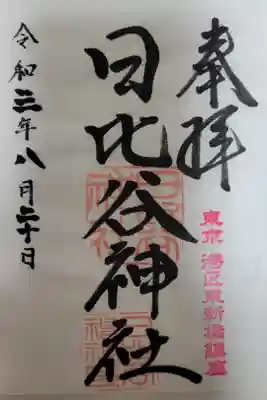 奉拝
東京 港区東新橋鎮座
日比谷神社
令和三年八月二十日